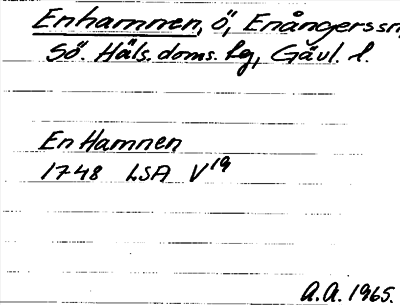 Enhamnen, ö, Enångerssn,
Sö. Häls. doms. hg, Gävl. l.
En Hamnen
1748 LSA V19
A.A. 1965.